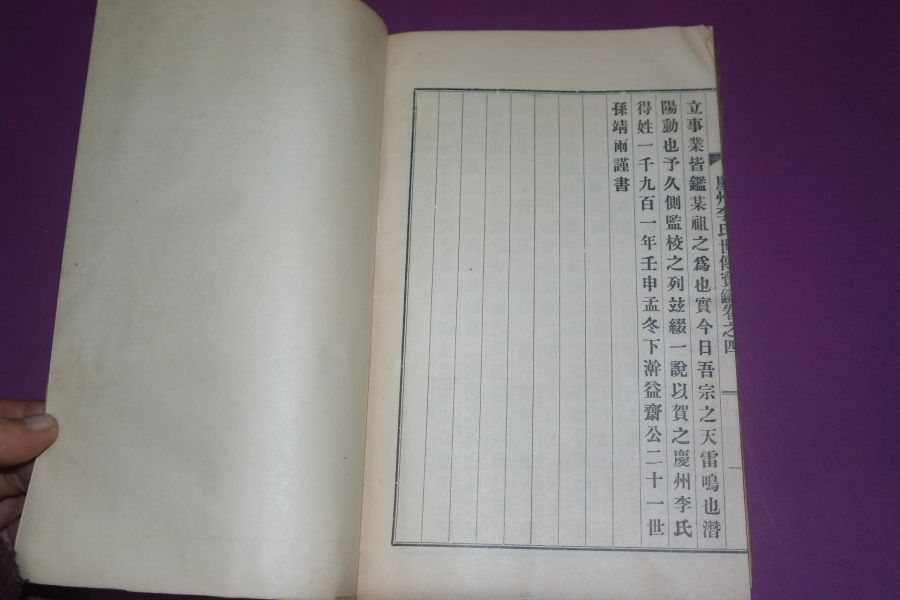 慶州李氏世傳寶鑑卷之四
立事業皆鑑某祖之爲也實今日吾宗之天雷鳴也潛
陽動也予久側監校之列玆綴一說以賀之慶州李氏
得姓一千九百一年壬申孟冬下澣益齋公二十一世
孫靖雨謹書